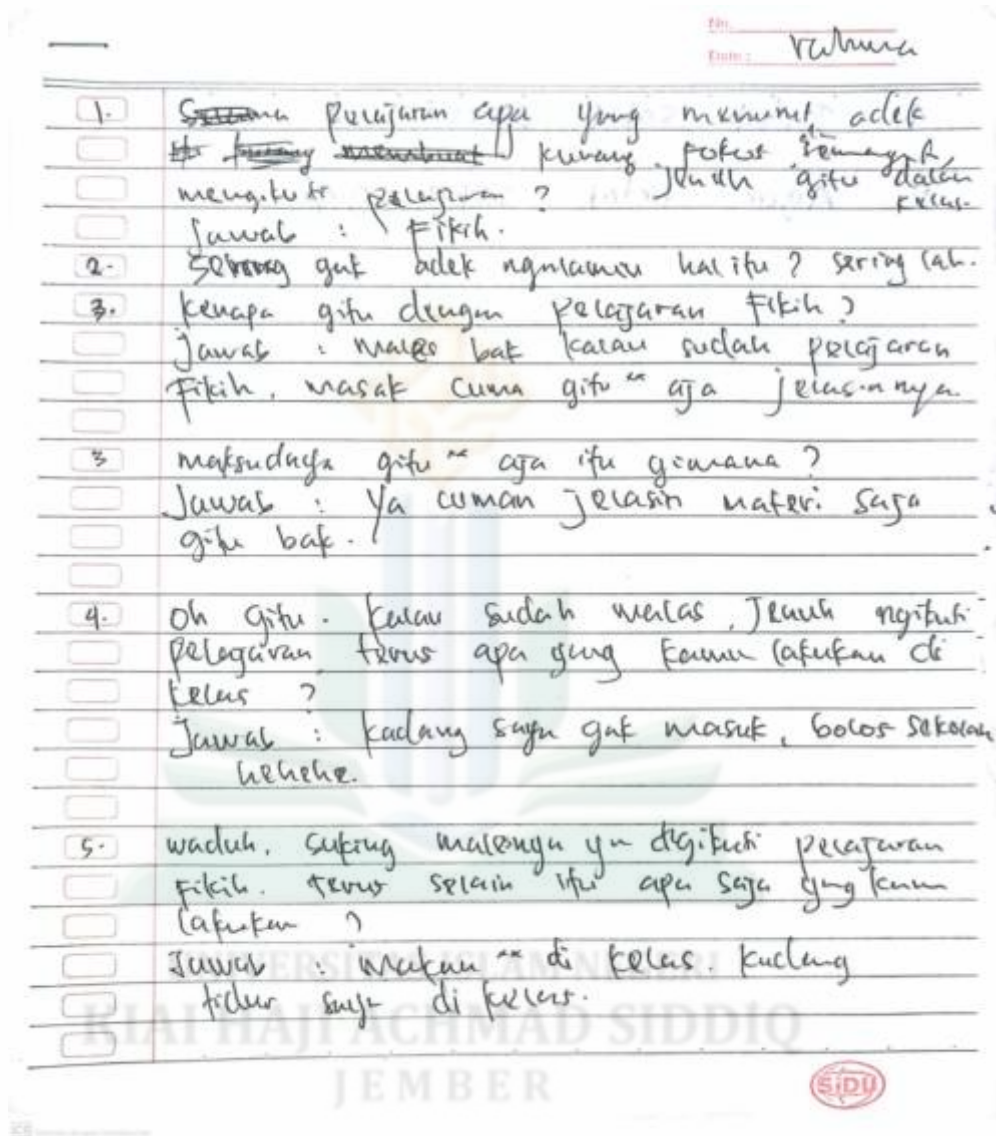 No.
Date : rahma
1. pelajaran apa yang menurut adek
kurang fokus, semangat,
jenuh gitu dalam
mengikuti pelajaran ? kelas.
Jawab : Fikih.
2. Sering gak adek ngalamin hal itu ? sering lah.
3. Kenapa gitu dengan pelajaran Fikih ?
Jawab : males bak kalau sudah pelajaran
Fikih, masak cuma gitu" aja jelasinnya.
3 maksudnya gitu" aja itu gimana ?
Jawab : Ya cuman jelasin materi saja
gitu bak.
4. Oh gitu. Kalau sudah malas, Jenuh ngikuti
pelajaran, terus apa yang kamu lakukan di
kelas ?
Jawab : kadang saya gak masuk, bolos sekolah
hehehe.
5. waduh, saking malesnya ya ngikuti pelajaran
Fikih. terus selain itu apa saja yang kamu
lakukan ?
Jawab : makan" di kelas. kadang
tidur saya di kelas.
UNIVERSITAS ISLAM NEGERI
KIAI HAJI ACHMAD SIDDIQ
JEMBER
SIDU